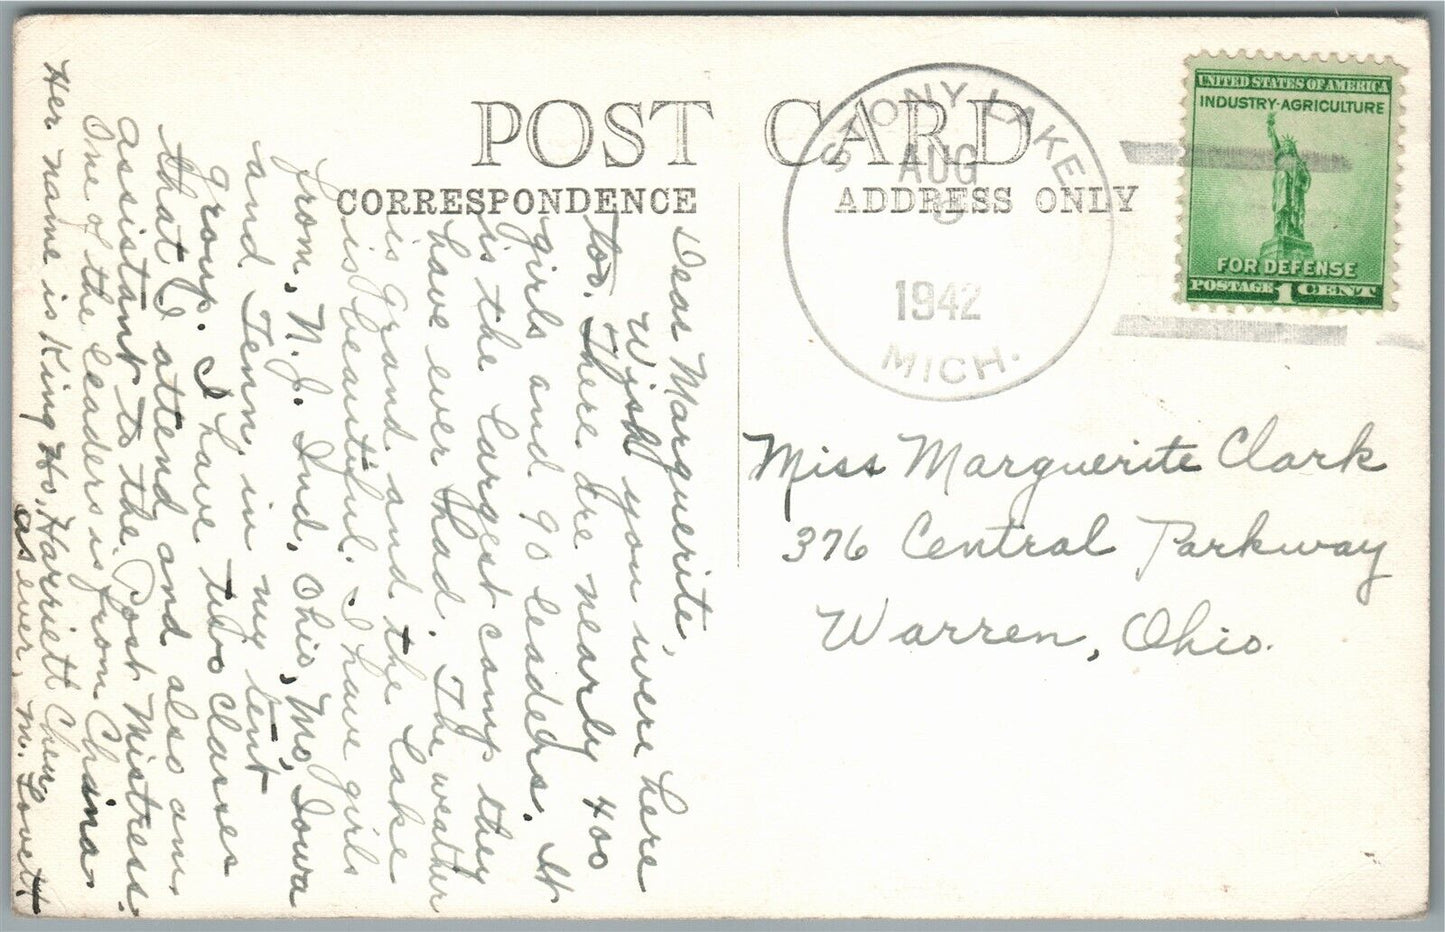 POST CARD
CORRESPONDENCE
ADDRESS ONLY
STONY LAKE
AUG
1942
MICH.
UNITED STATES OF AMERICA
INDUSTRY·AGRICULTURE
FOR DEFENSE
POSTAGE 1 CENT
Dear Marguerite,
Wish you were here
too. There are nearly 400
girls and 90 leaders. It
is the largest camp they
have ever had. The weather
is grand and the lake
is beautiful. I have girls
from, N.J. Ind, Ohio, Mo, Iowa
and Tenn, in my tent
group. I have two classes
that I attend and also am
assistant to the Post Mistress.
One of the leaders is from China.
Her name is King Ho, Harriett Chen
as ever, M. Lovett
Miss Marguerite Clark
376 Central Parkway
Warren, Ohio.